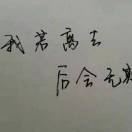 我若离去
后会无期